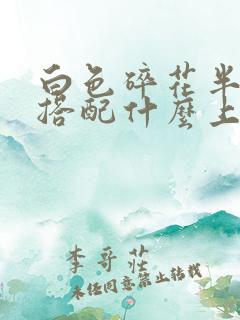 白色碎花半
搭配什麼上
李哥莊
未经同意禁止转载